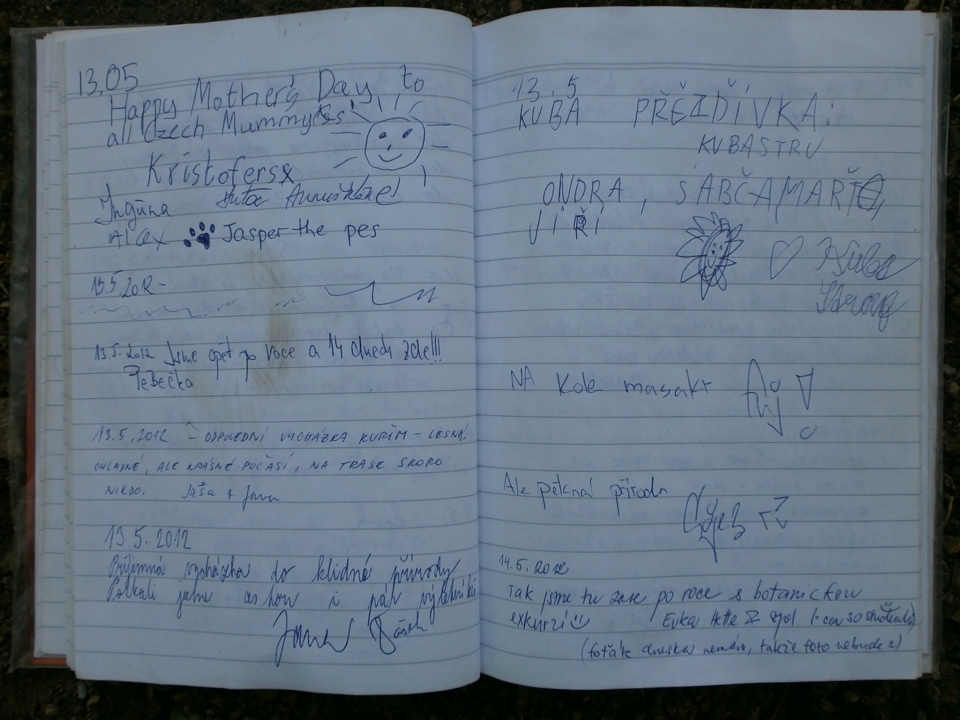 13.05
Happy Mother's Day to
all Czech Mummykes!
Kristofersx
Ingūna
Alex Jasper the pes
13.5.2012
13.5.2012 Jsme opět po roce a 14 dnech zde!!!
Pebečka
13.5.2012 – ODPOLEDNÍ VYCHÁZKA KUŘIM – LESNÁ.
CHLADNĚ, ALE KRÁSNÉ POČASÍ, NA TRASE SKORO
NIKDO. Jaša + Jana
13.5.2012
Příjemná vycházka do klidné přírody
Potkali jsme i pár výletníků
13.5
KUBA PŘĚZDÍVKA:
KUBASTRU
ONDRA, SÁBČAMARŤE,
JIŘÍ
♡ Kuba
NA kole masakr
Ale pěkná příroda
14.5.2012
Tak jsme tu zase po roce s botanickou
exkurzí Evka
(foťák dneska nemám, takže foto nebude)